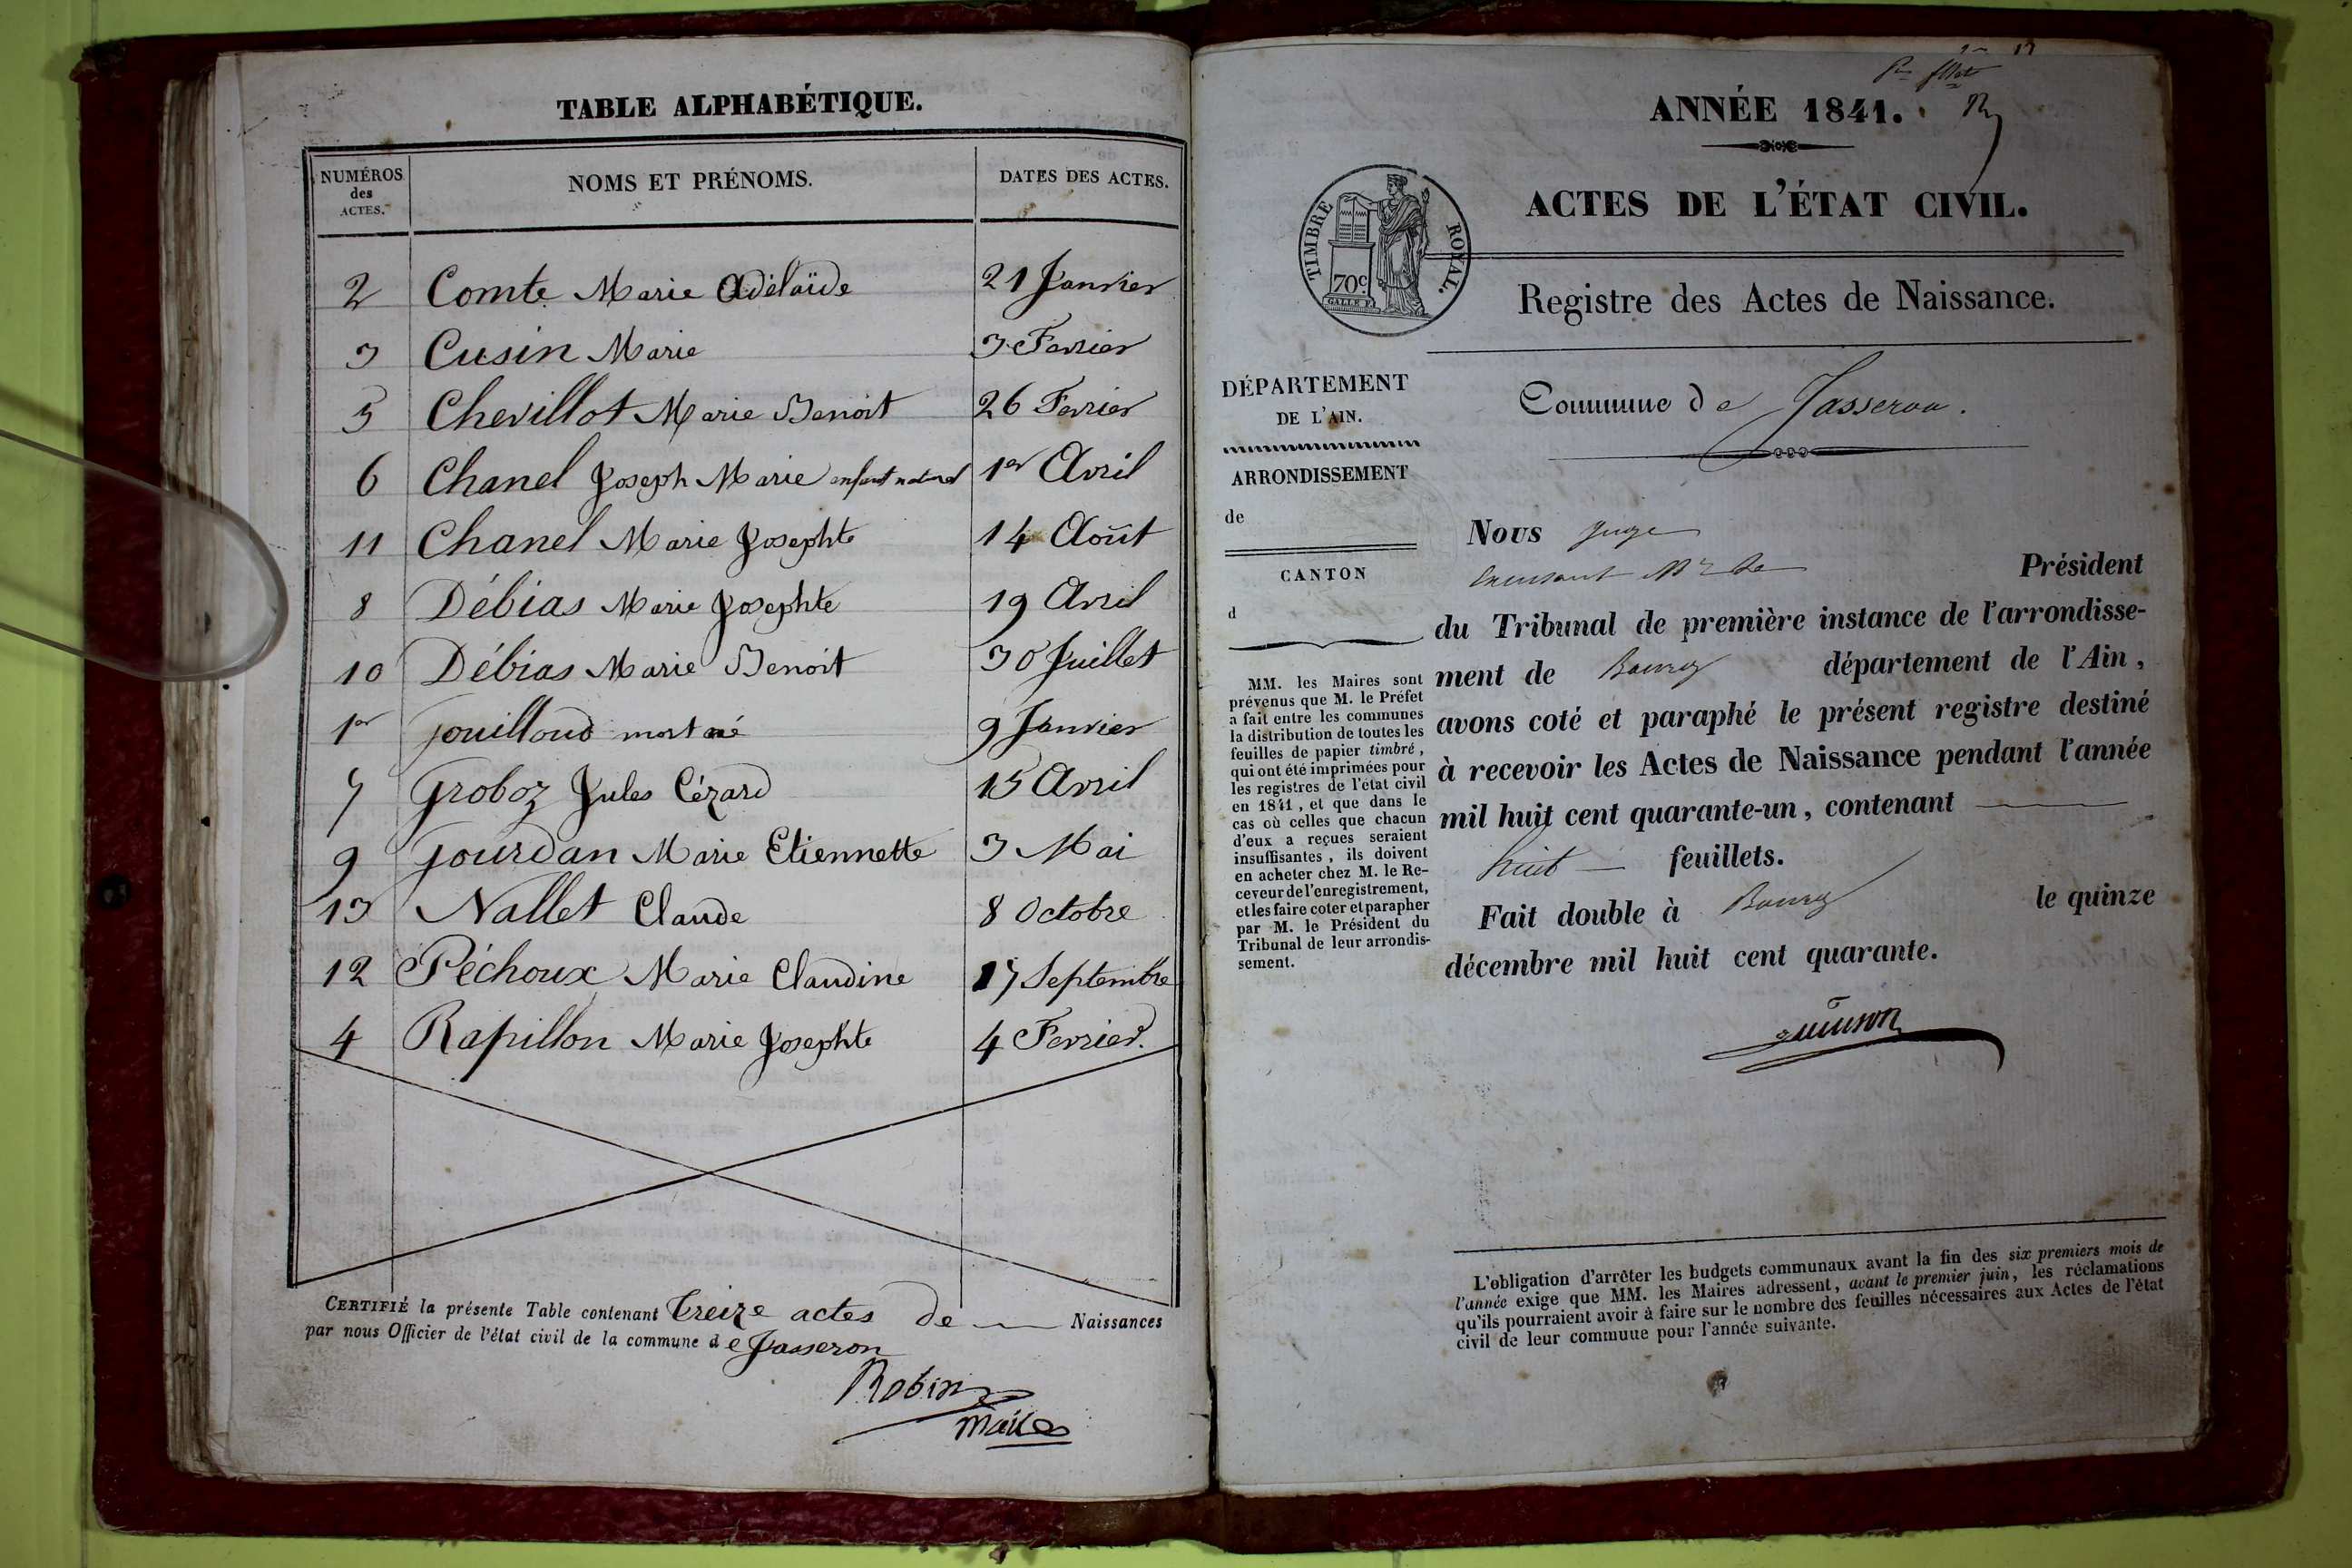 TABLE ALPHABÉTIQUE.
NUMÉROS des ACTES. NOMS ET PRÉNOMS. DATES DES ACTES.
2 Comte Marie Adélaïde 21 Janvier
3 Cusin Marie 3 Fevrier
5 Chevillot Marie Benoit 26 Fevrier
6 Chanel Joseph Marie enfant naturel 1er Avril
11 Chanel Marie Josephte 14 Août
8 Débias Marie Josephte 19 Avril
10 Débias Marie Benoit 30 Juillet
1er Gouilloud mort né 9 Janvier
7 Groboz Jules Cézard 15 Avril
9 Gourdan Marie Etiennette 3 Mai
13 Nallet Claude 8 Octobre
12 Péchoux Marie Claudine 17 Septembre
4 Rapillon Marie Josephte 4 Fevrier.
CERTIFIÉ la présente Table contenant Treize actes de Naissances
par nous Officier de l'état civil de la commune de Jasseron
Robin
Maire
ANNÉE 1841.
ACTES DE L'ÉTAT CIVIL.
TIMBRE ROYAL.
70c
GALLE F.
Registre des Actes de Naissance.
DÉPARTEMENT
DE L'AIN.
ARRONDISSEMENT
de
CANTON
d
MM. les Maires sont
prévenus que M. le Préfet
a fait entre les communes
la distribution de toutes les
feuilles de papier timbré,
qui ont été imprimées pour
les registres de l'état civil
en 1841, et que dans le
cas où celles que chacun
d'eux a reçues seraient
insuffisantes, ils doivent
en acheter chez M. le Re-
ceveur de l'enregistrement,
et les faire coter et parapher
par M. le Président du
Tribunal de leur arrondis-
sement.
Commune de Jasseron.
Nous Juge
Président
du Tribunal de première instance de l'arrondisse-
ment de Bourg département de l'Ain,
avons coté et paraphé le présent registre destiné
à recevoir les Actes de Naissance pendant l'année
mil huit cent quarante-un, contenant
huit feuillets.
Fait double à Bourg le quinze
décembre mil huit cent quarante.
L'obligation d'arrêter les budgets communaux avant la fin des six premiers mois de
l'année exige que MM. les Maires adressent, avant le premier juin, les réclamations
qu'ils pourraient avoir à faire sur le nombre des feuilles nécessaires aux Actes de l'état
civil de leur commune pour l'année suivante.